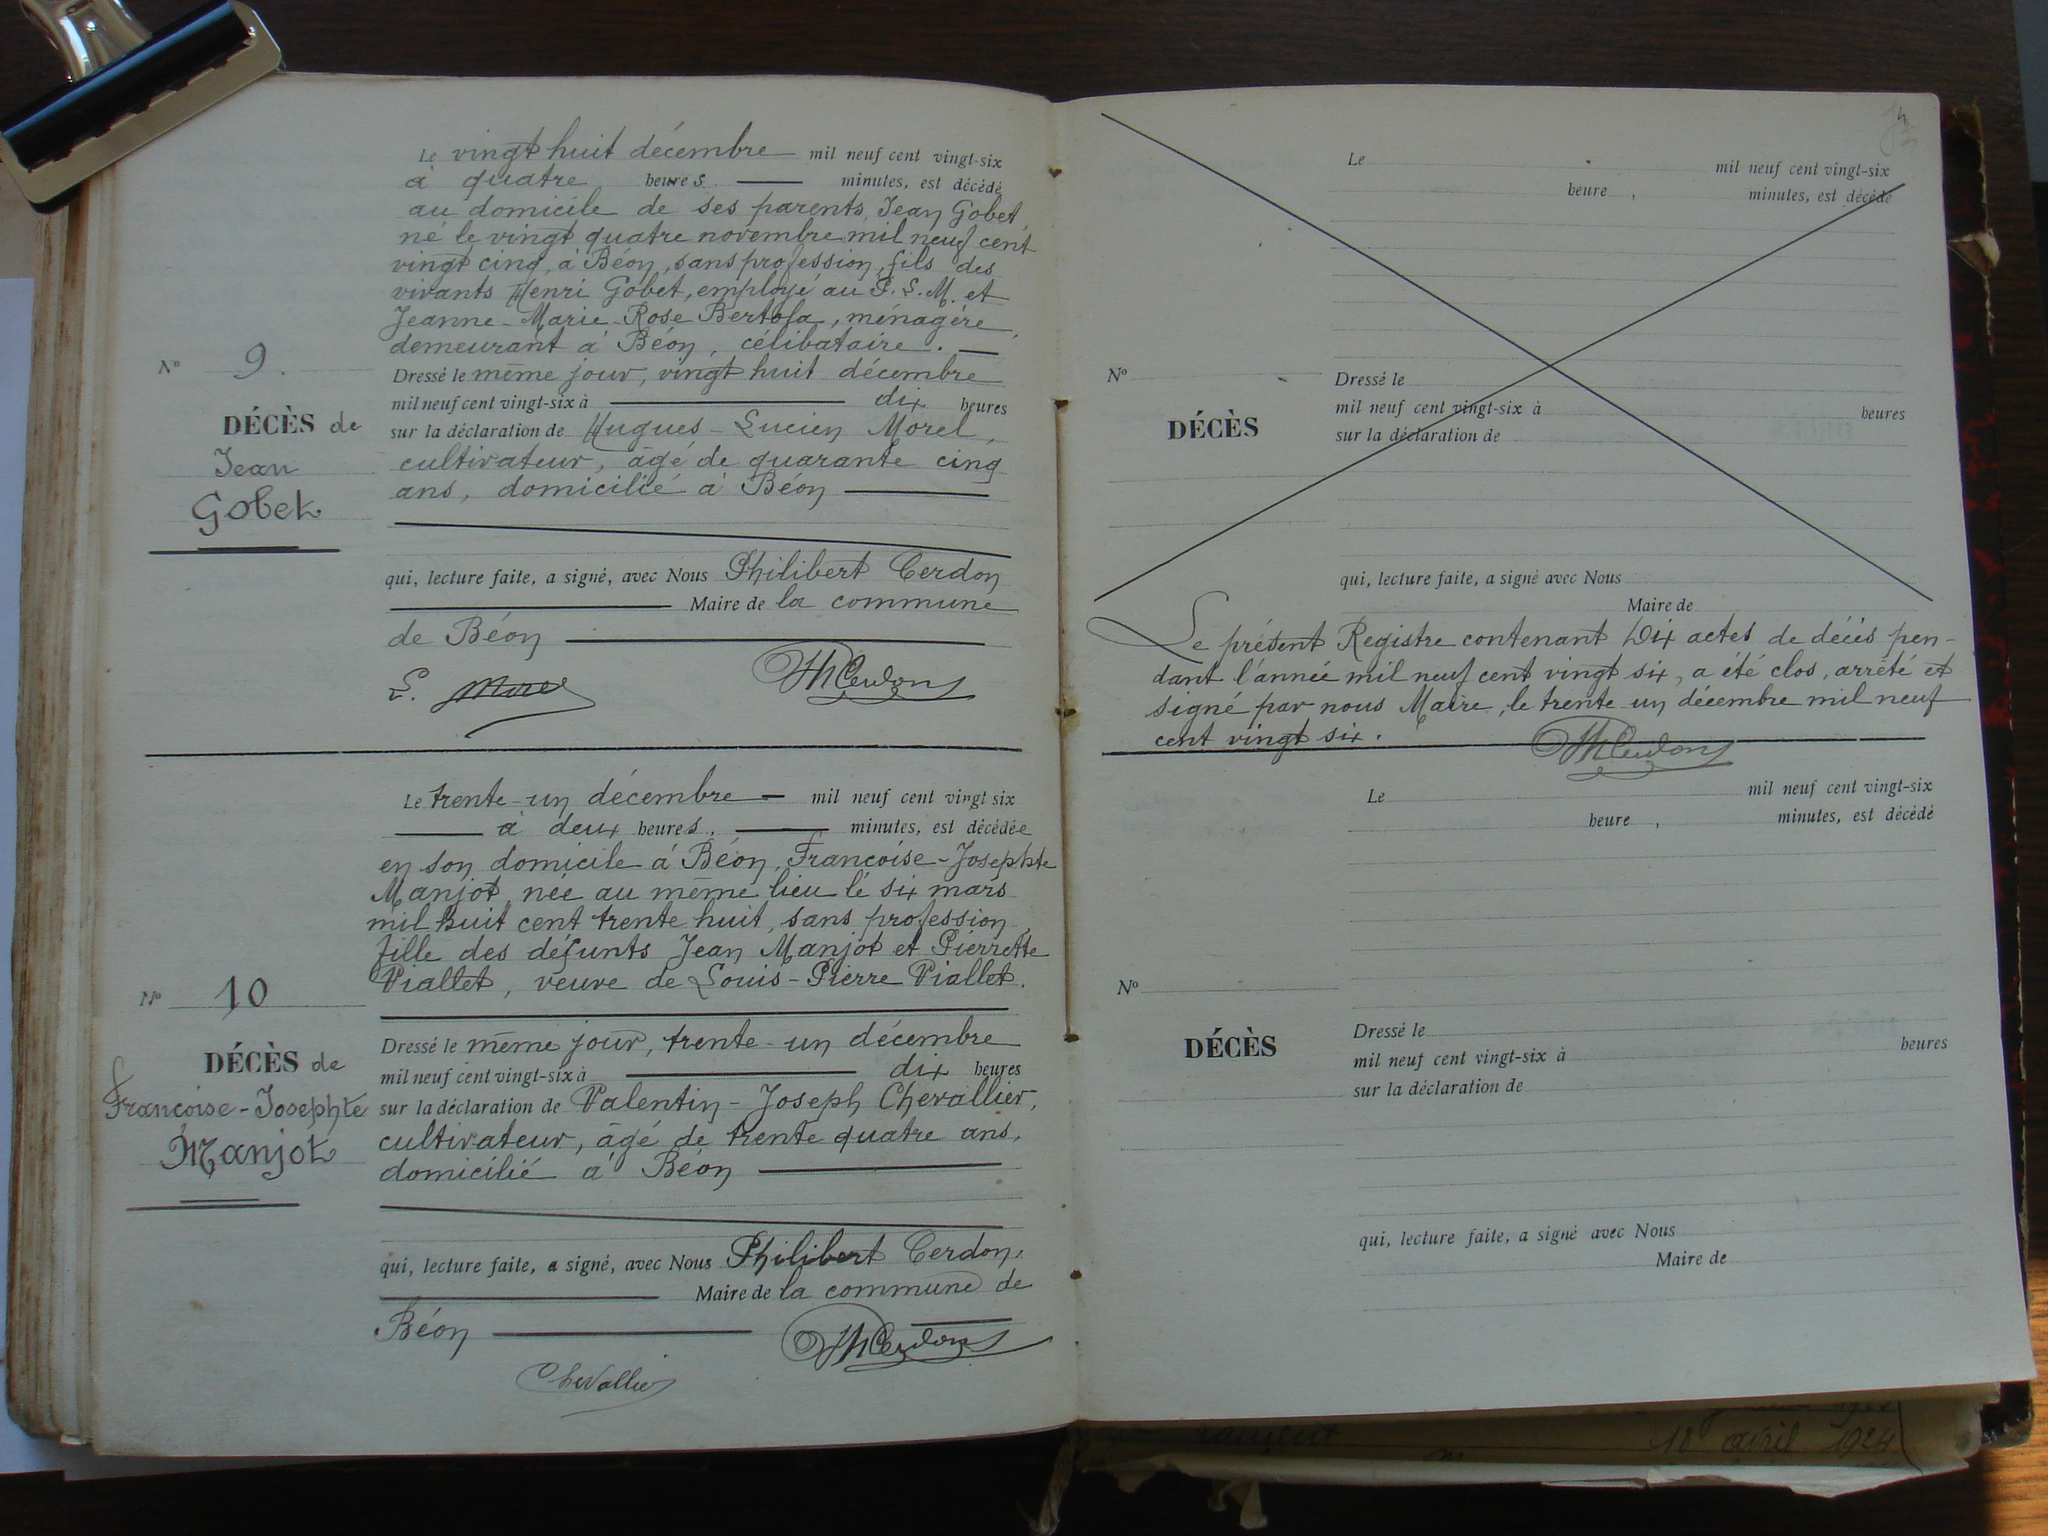 Le vingt huit décembre mil neuf cent vingt-six
à quatre heures. minutes, est décédé
au domicile de ses parents, Jean Gobet,
né le vingt quatre novembre mil neuf cent
vingt cinq, à Béon, sans profession, fils des
vivants Henri Gobet, employé au P. L. M. et
Jeanne-Marie-Rose Bertola, ménagère,
demeurant à Béon, célibataire.
Nº 9.
DÉCÈS de
Jean
Gobet
Dressé le même jour, vingt huit décembre
mil neuf cent vingt-six à dix heures
sur la déclaration de Hugues-Lucien Morel,
cultivateur, âgé de quarante cinq
ans, domicilié à Béon
qui, lecture faite, a signé, avec Nous Philibert Cerdon
Maire de la commune
de Béon
L. Morel PhCerdon
Le trente-un décembre mil neuf cent vingt six
à deux heures, minutes, est décédée
en son domicile à Béon, Françoise-Josephte
Manjot, née au même lieu le six mars
mil huit cent trente huit, sans profession,
fille des défunts Jean Manjot et Pierrette
Viallet, veuve de Louis-Pierre Viallet.
Nº 10
DÉCÈS de
Françoise-Josephte
Manjot
Dressé le même jour, trente-un décembre
mil neuf cent vingt-six à dix heures
sur la déclaration de Valentin-Joseph Chevallier,
cultivateur, âgé de trente quatre ans,
domicilié à Béon
qui, lecture faite, a signé, avec Nous Philibert Cerdon,
Maire de la commune de
Béon PhCerdon
Chevallier
Le mil neuf cent vingt-six
heure, minutes, est décédé
Nº
DÉCÈS
Dressé le
mil neuf cent vingt-six à heures
sur la déclaration de
qui, lecture faite, a signé avec Nous
Maire de
Le présent Registre contenant Dix actes de décès pen-
dant l'année mil neuf cent vingt six, a été clos, arrêté et
signé par nous Maire, le trente-un décembre mil neuf
cent vingt six. PhCerdon
Le mil neuf cent vingt-six
heure, minutes, est décédé
Nº
DÉCÈS
Dressé le
mil neuf cent vingt-six à heures
sur la déclaration de
qui, lecture faite, a signé avec Nous
Maire de
18 avril 1924